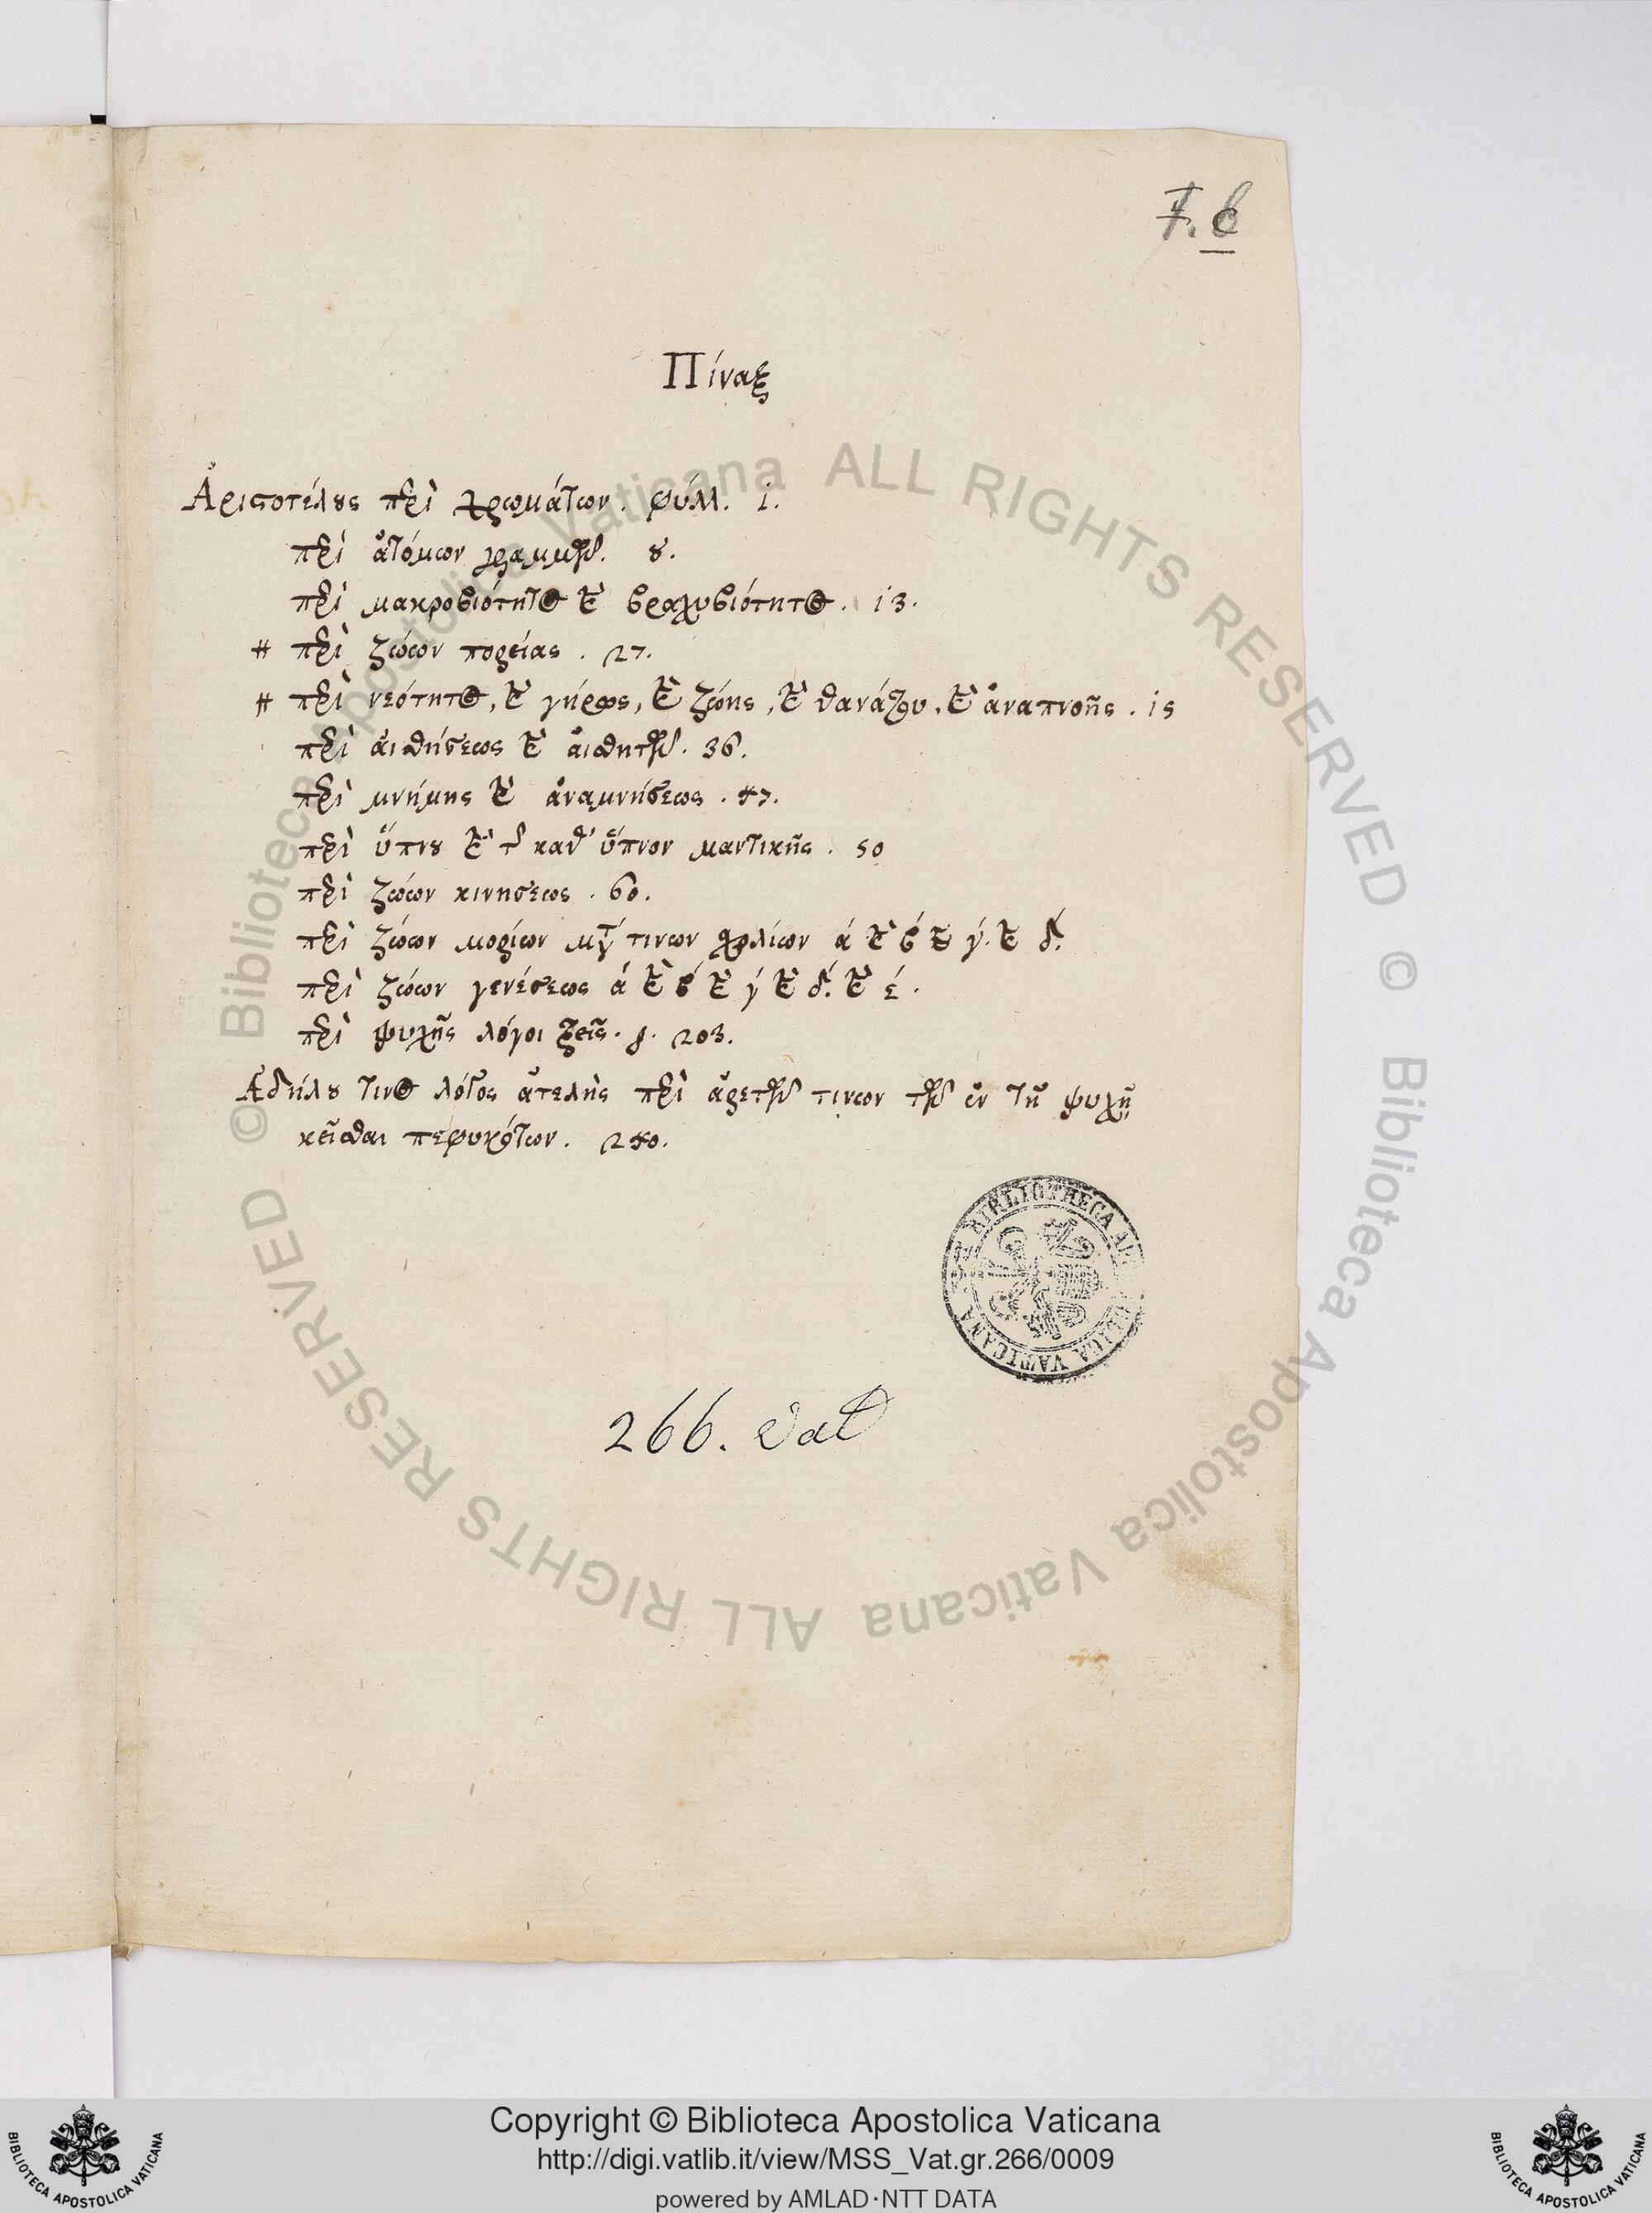 F. c
Πίναξ
Ἀριστοτέλους περὶ χρωμάτων. φύλλ. 1.
περὶ ἀτόμων γραμμῶν. 8.
περὶ μακροβιότητος καὶ βραχυβιότητος. 13.
# περὶ ζώων πορείας. 27.
# περὶ νεότητος, καὶ γήρως, καὶ ζωῆς, καὶ θανάτου, καὶ ἀναπνοῆς. 15
περὶ αἰσθήσεως καὶ αἰσθητῶν. 36.
περὶ μνήμης καὶ ἀναμνήσεως. 47.
περὶ ὕπνου καὶ τῆς καθ' ὕπνον μαντικῆς. 50
περὶ ζώων κινήσεως. 60.
περὶ ζώων μορίων μετά τινων σχολίων ά καὶ β́ καὶ γ́. καὶ δ́.
περὶ ζώων γενέσεως ά καὶ β́ καὶ γ́ καὶ δ́. καὶ έ.
περὶ ψυχῆς λόγοι τρεῖς. 203.
Ἀδήλου τινος λόγος ἀτελὴς περὶ ἀρετῶν τινων τῶν ἐν τῇ ψυχῇ
κεῖσθαι πεφυκότων. 240.
BIBLIOTHECA APOSTOLICA VATICANA
266. Vat
© Biblioteca Apostolica Vaticana ALL RIGHTS RESERVED © Biblioteca Apostolica Vaticana ALL RIGHTS RESERVED
Copyright © Biblioteca Apostolica Vaticana
http://digi.vatlib.it/view/MSS_Vat.gr.266/0009
powered by AMLAD·NTT DATA
BIBLIOTECA APOSTOLICA VATICANA
BIBLIOTECA APOSTOLICA VATICANA